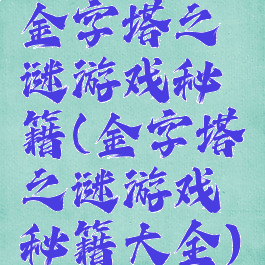 金字塔之
谜游戏秘
籍(金字塔
之谜游戏
秘籍大全)